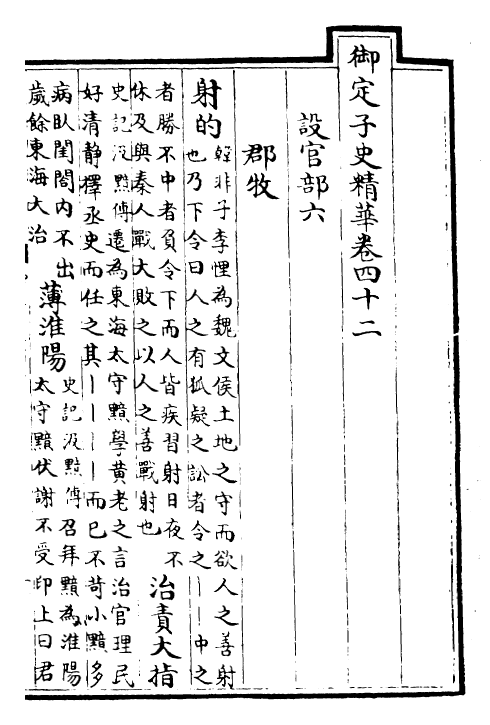 御定子史精華卷四十二
設官部六
郡牧
射的
韓非子李悝為魏文侯土地之守而欲人之善射
也乃下令曰人之有狐疑之訟者令之丨丨中之
者勝不中者負令下而人皆疾習射日夜不
休及與秦人戰大敗之以人之善戰射也
治責大指
史記汲黯傳遷為東海太守黯學黄老之言治官理民
好清静擇丞史而任之其丨丨丨丨而已不苛小黯多
病臥閨閤内不出
歲餘東海大治
薄淮陽
史記汲黯傳召拜黯為淮陽
太守黯伏謝不受印上曰君